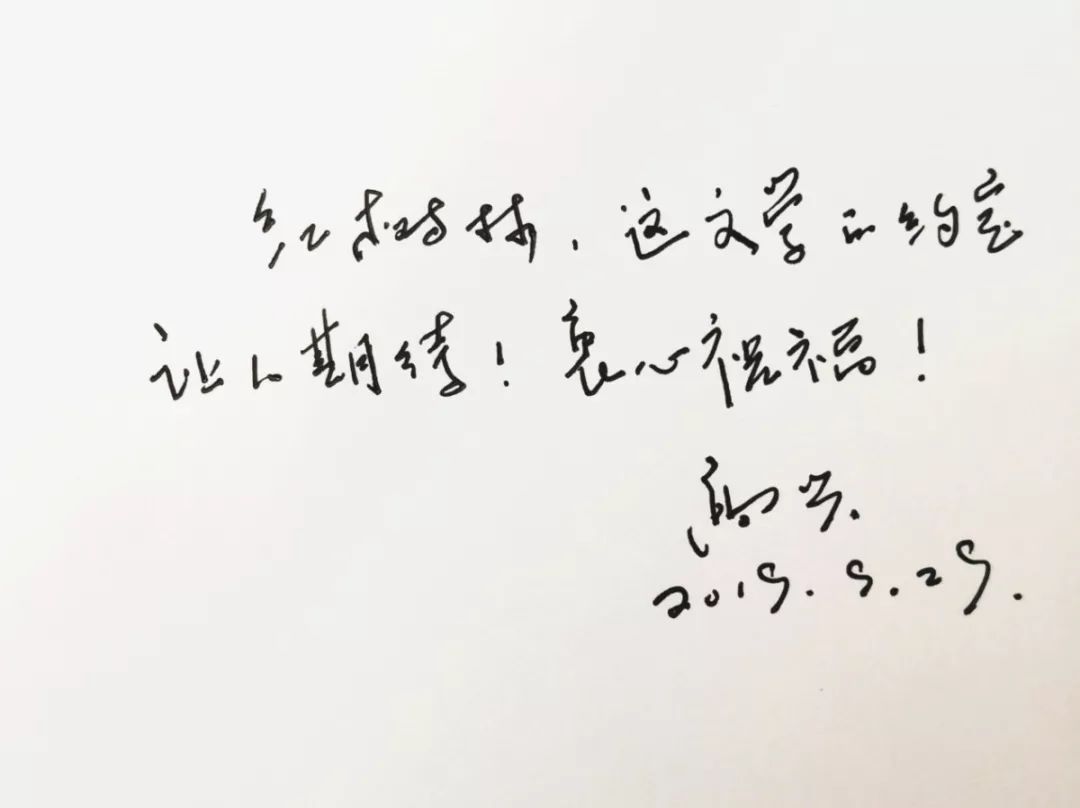 红树林，这文学的约定
让人期待！衷心祝福！
高兴.
2019.9.29.